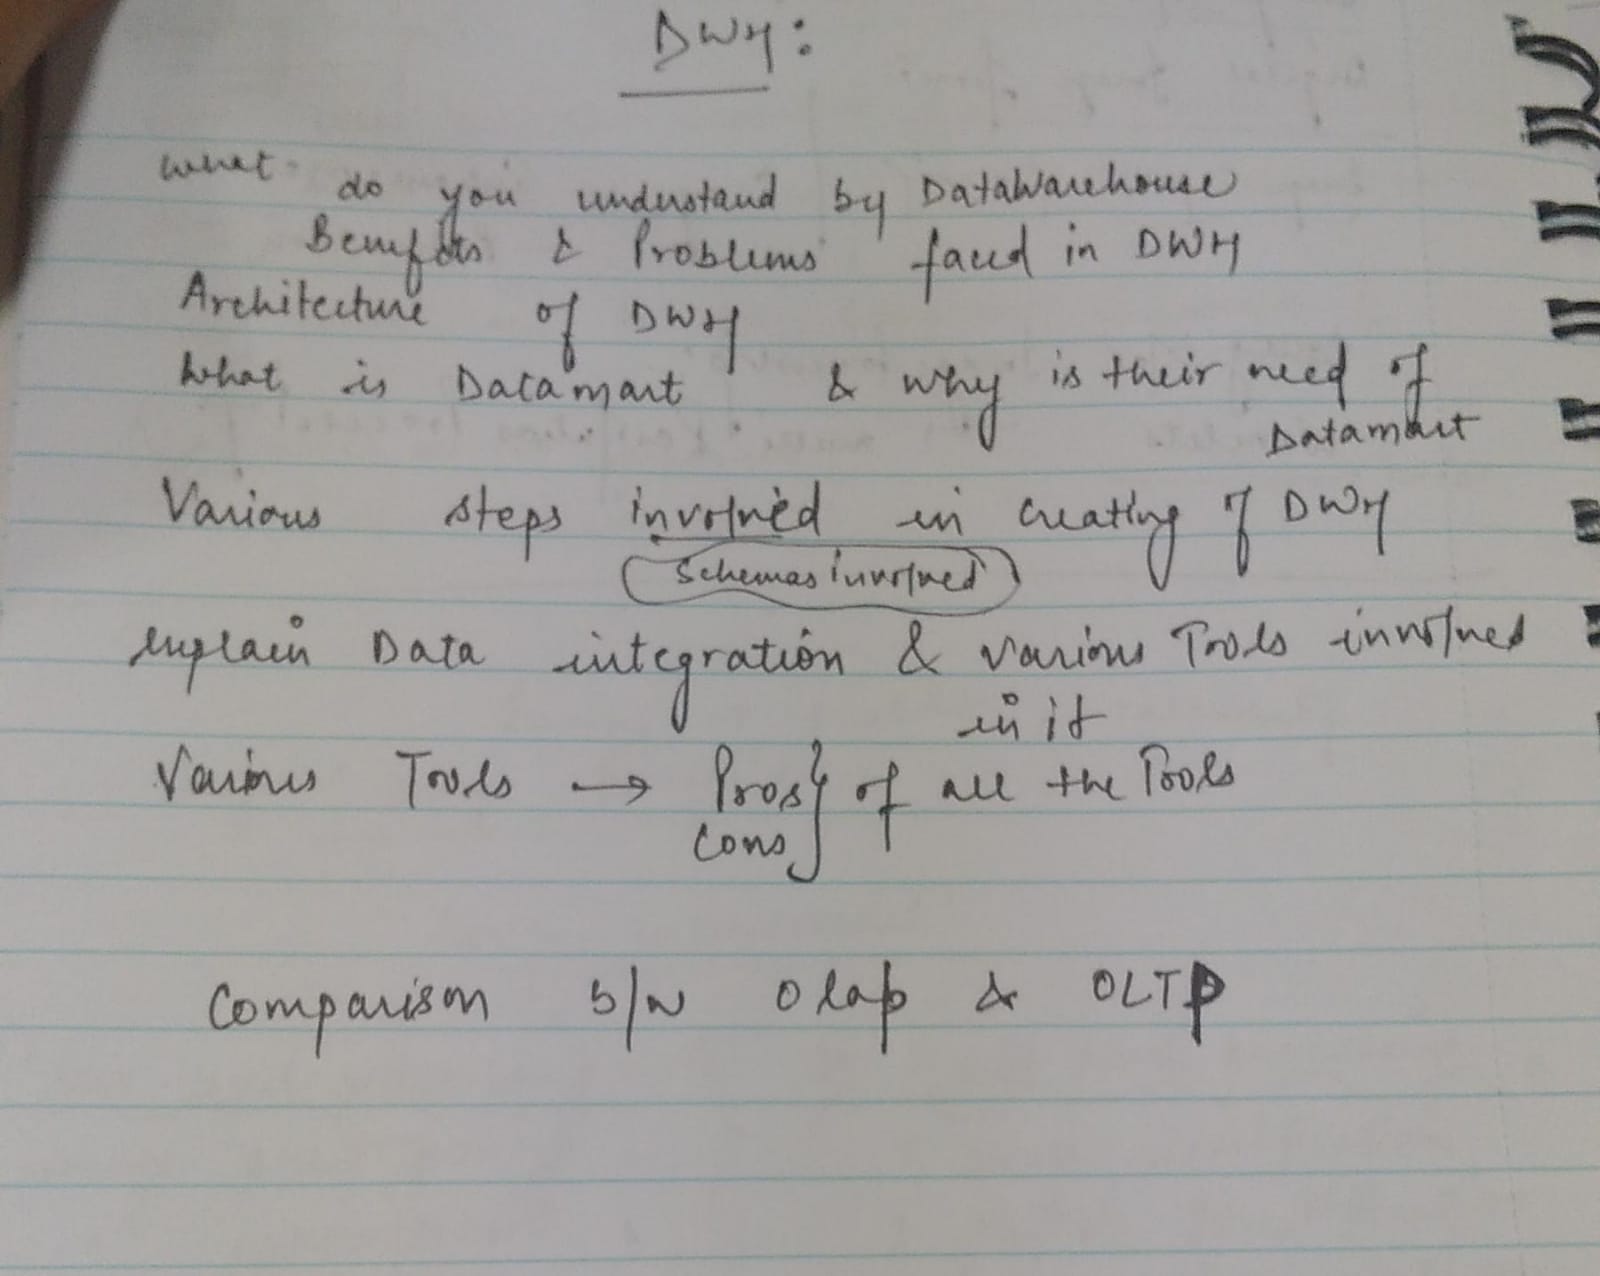 DWH:
What do you understand by DataWarehouse
Benefits & Problems faced in DWH
Architecture of DWH
What is Datamart & why is their need of
Datamart
Various steps involved in creating of DWH
Schemas involved
explain Data integration & various Tools involved
in it
Various Tools → Pros} of all the Tools
Cons
Comparison b/w Olap & OLTP